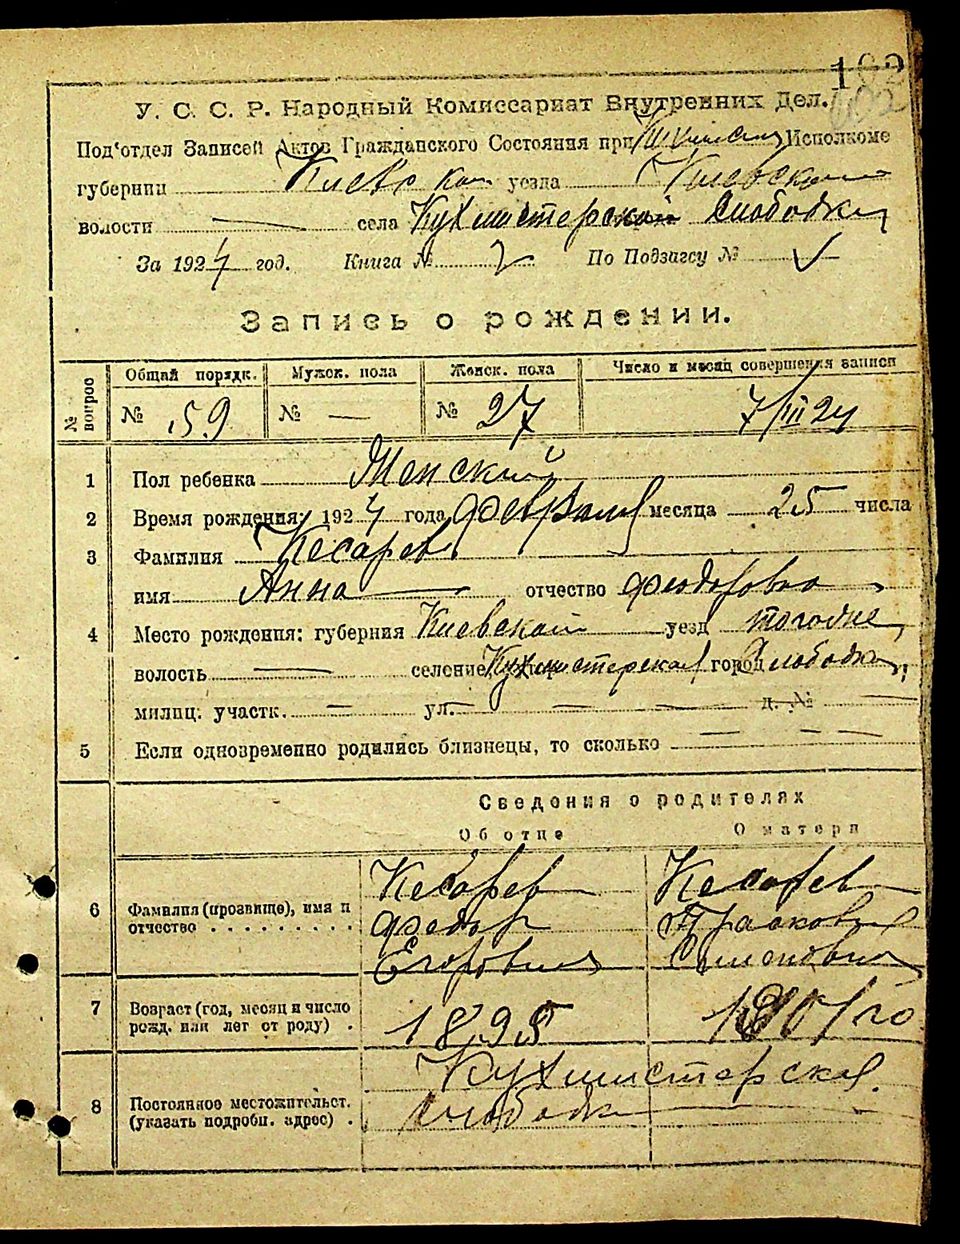 У. С. С. Р. Народный Комиссариат Внутренних Дел.
Под'отдел Записей Актов Гражданского Состояния при Исполкоме
губернии Киевской уезда Киевской
волости — села Кухмистерской Слободки
За 1924 год. Книга № 2 По Подзагсу №
Запись о рождении.
№ вопрос Общий порядк. Мужск. пола Женск. пола Число и месяц совершения записи
№ 59 № — № 27 7/III 24
1 Пол ребенка Женский
2 Время рождения: 1924 года февраля месяца 25 числа
3 Фамилия Кесарев
имя Анна отчество Феодоровна
4 Место рождения: губерния Киевской уезд тогоже
волость — селение Кухмистерская город Слободка
милиц. участк. — ул. — — — д. № —
5 Если одновременно родились близнецы, то сколько — — —
Сведения о родителях
Об отце О матери
6 Фамилия (прозвище), имя и отчество Кесарев Федор Егорович Кесарев Прасковия Семеновна
7 Возраст (год, месяц и число рожд. или лет от роду) 1895 1901 го
8 Постоянное местожительст. (указать подробн. адрес) Кухмистерская
слободка